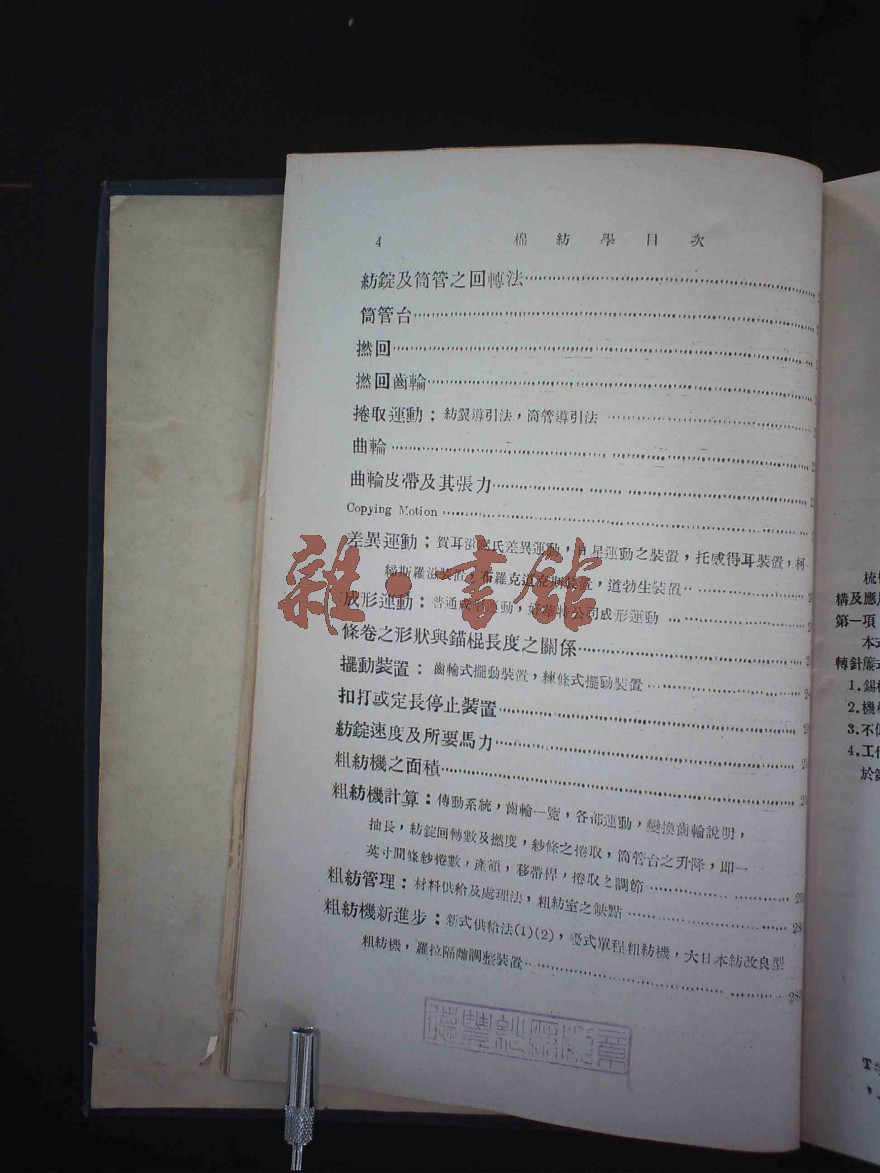 4 棉紡學目次
紡錠及筒管之回轉法
筒管台
撚回
撚回齒輪
捲取運動：紡翼導引法，筒管導引法
曲輪
曲輪皮帶及其張力
Copying Motion
差異運動：賀耳滋 氏差異運動，日星運動之裝置，托威得耳裝置，柯
斯羅滋裝置，布羅克 裝置，道勃生裝置
成形運動：普通成形運動， 公司成形運動
條卷之形狀與錨棍長度之關係
擺動裝置：齒輪式擺動裝置，練條式擺動裝置
扣打或定長停止裝置
紡錠速度及所要馬力
粗紡機之面積
粗紡機計算：傳動系統，齒輪一覽，各部運動，變換齒輪說明，
抽長，紡錠回轉數及撚度，紗條之捲取，筒管台之升降，即一
英寸間條紗捲數，產額，移帶桿，捲取之調節
粗紡管理：材料供給及處理法，粗紡室之缺點
粗紡機新進步：新式供給法(1)(2)， 式單程粗紡機，大日本紡改良型
粗紡機，羅拉隔離調整裝置
雜·書館
梳
構及應
第一項
本式
轉針簾式
1.錫
2.機
3.不
4.工作
於